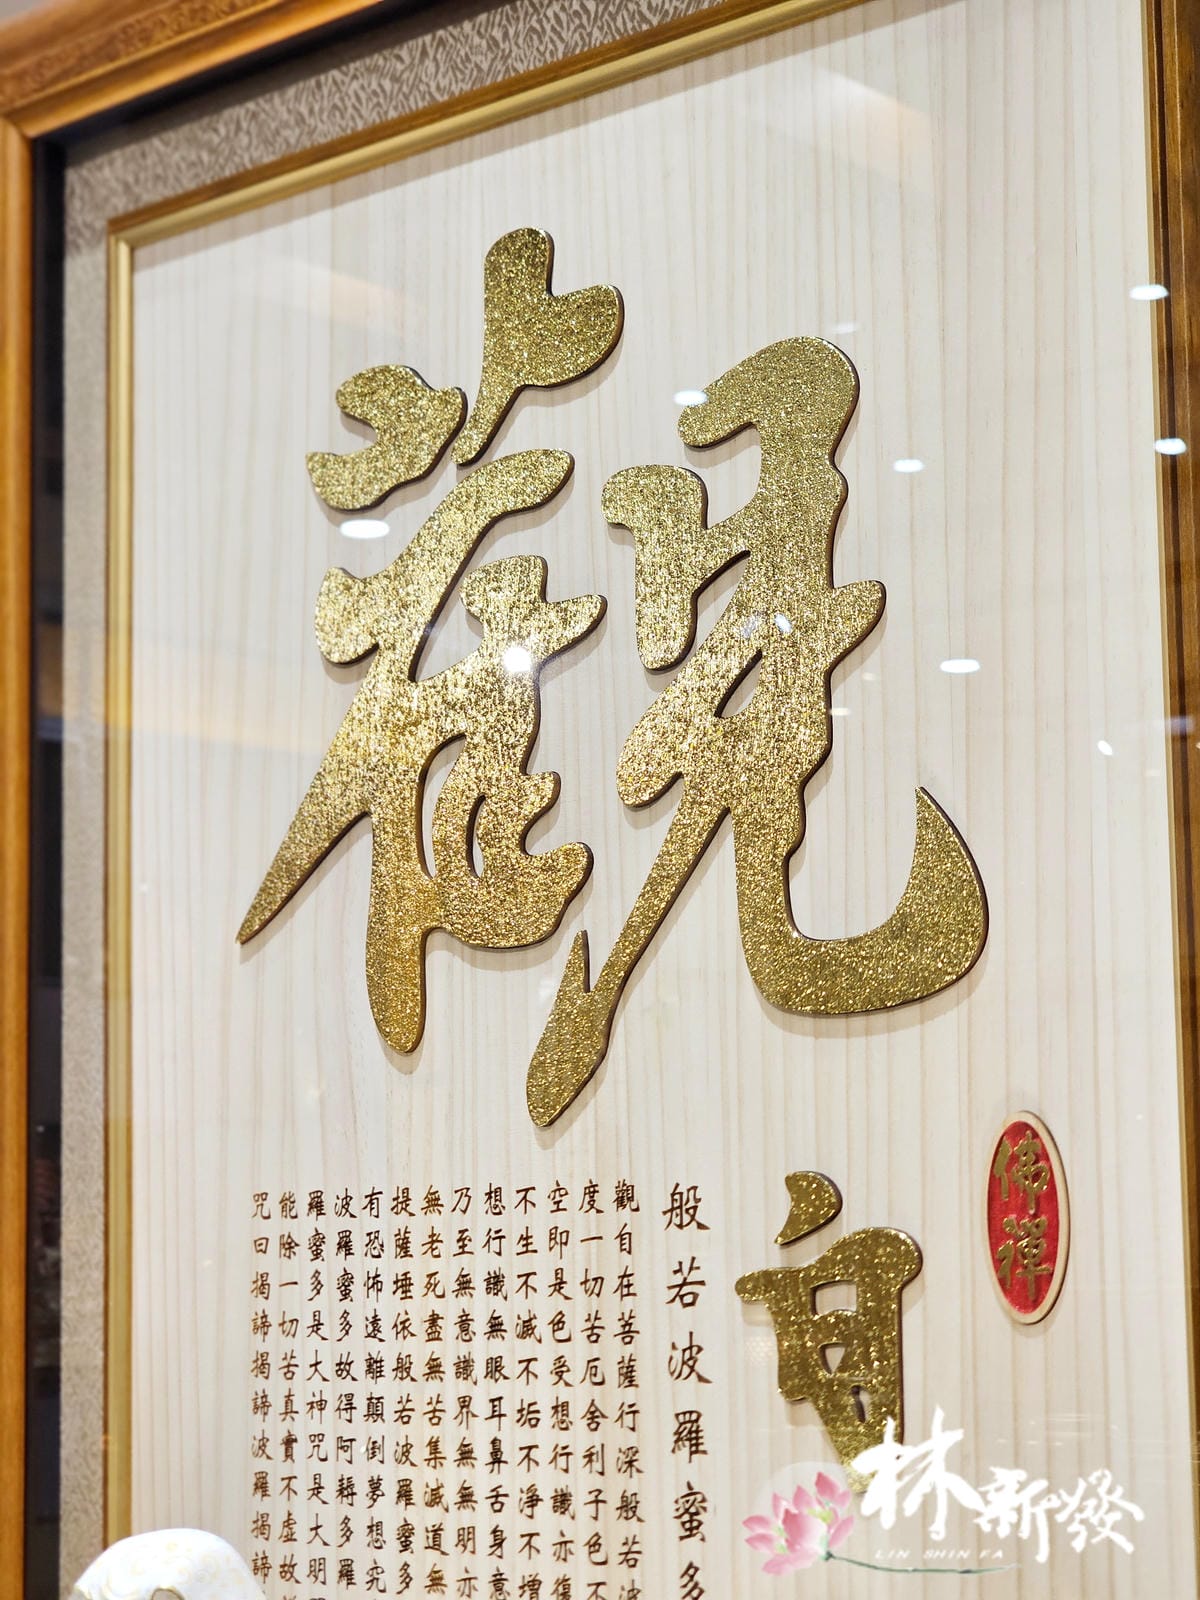 觀
音
佛禪
般若波羅蜜多
觀自在菩薩行深般若波
度一切苦厄舍利子色不
空即是色受想行識亦復
不生不滅不垢不淨不增
想行識無眼耳鼻舌身意
乃至無意識界無無明亦
無老死盡無苦集滅道無
提薩埵依般若波羅蜜多
有恐怖遠離顛倒夢想究
波羅蜜多故得阿耨多羅
羅蜜多是大神咒是大明
能除一切苦真實不虛故
咒曰揭諦揭諦波羅揭諦
林新發
LIN SHIN FA